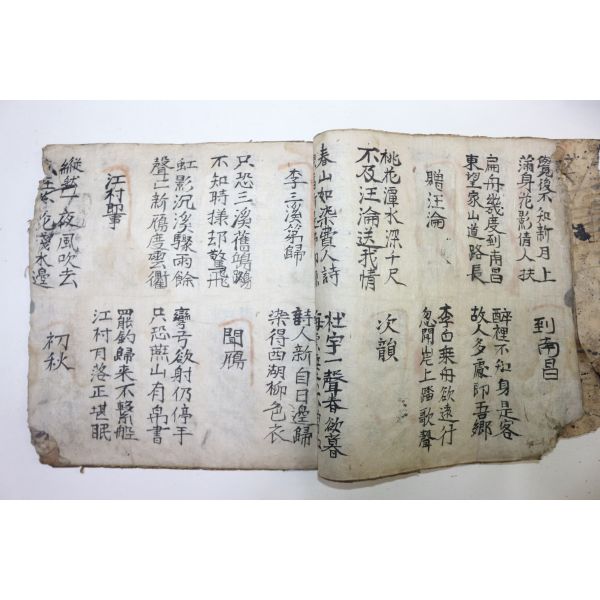 覺後不知新月上
滿身花影倩人扶
到南昌
扁舟幾度到南昌
東望家山道路長
醉裡不知身是客
故人多處即吾鄉
贈汪淪
李白乘舟欲遠行
忽聞岸上踏歌聲
桃花潭水深千尺
不及汪淪送我情
次韻
春山如染費人詩
杜宇一聲春欲暮
李三溪第歸
詩人新自日邊歸
染得西湖柳色衣
只恐三溪舊
不知時樣却驚飛
聞鴈
虹影沉溪驟雨餘
聲二新鴈度雲衢
彎弓欲射仍停手
只恐燕山有帛書
江村即事
罷釣歸來不繫船
江村月落正堪眠
縱然一夜風吹去
花淺水邊
初秋